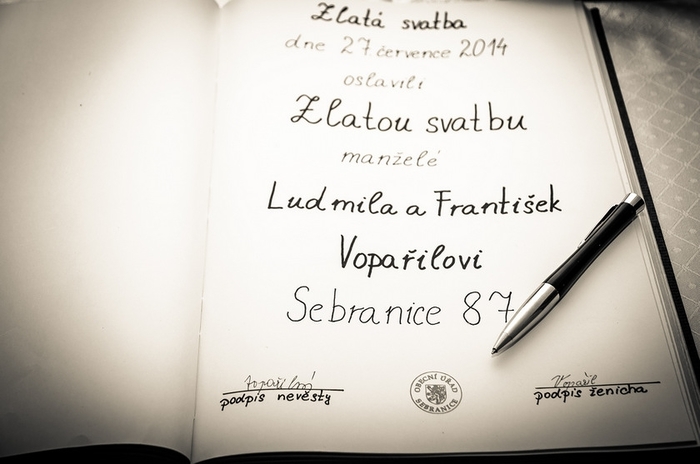 Zlatá svatba
dne 27 července 2014
oslavili
Zlatou svatbu
manželé
Ludmila a František
Vopařilovi
Sebranice 87
Vopařilová
podpis nevěsty
OBECNÍ ÚŘAD
SEBRANICE
Vopařil
podpis ženicha